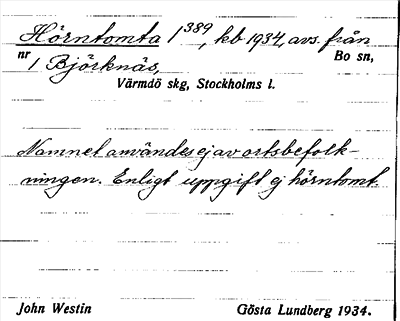 Hörntomta 1³⁸⁹, kb 1934, avs. från
nr 1 Björknäs, Bo sn,
Värmdö skg, Stockholms l.
Namnet användes ej av ortsbefolk-
ningen. Enligt uppgift ej hörntomt.
John Westin Gösta Lundberg 1934.